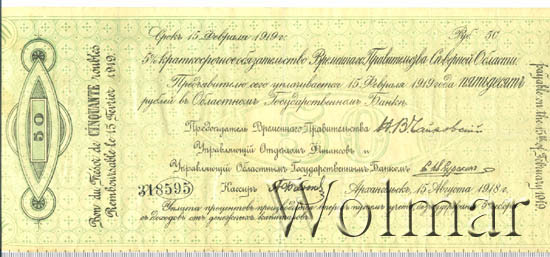 Срокъ 15 Февраля 1919 г.
Руб. 50
5% краткосрочное обязательство Временнаго Правительства Северной Области.
Предъявителю сего уплачивается 15 Февраля 1919 года пятьдесят
рублей в Областномъ Государственномъ Банкѣ.
Председатель Временнаго Правительства Н.В. Чайковскій
Управляющій Отделомъ Финансов и
Управляющій Областнымъ Государственнымъ Банкомъ
318595
Кассир
Архангельскъ, 15 Августа 1918 г.
Уплата процентов
с доходовъ отъ денежныхъ капиталовъ.
50
Bon du Trésor de CINQUANTE roubles
Remboursable le 15 Février 1919.
payable on the 15th of February 1919.
Wolmar